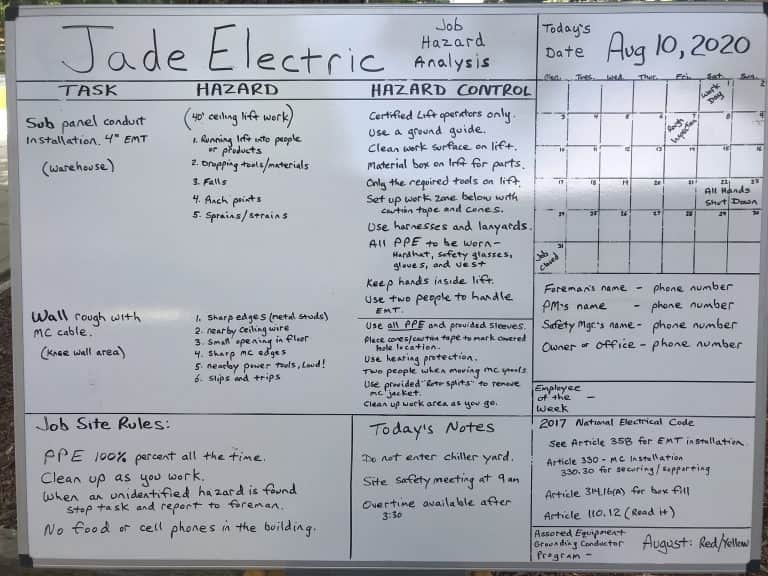 Jade Electric
Job
Hazard
Analysis
Today's
Date Aug 10, 2020
TASK
HAZARD
HAZARD CONTROL
Sub panel conduit
Installation. 4" EMT
(warehouse)
(40' ceiling lift work)
1. Running lift into people
or products
2. Dropping tools/materials
3. Falls
4. Pinch points
5. Sprains/strains
Certified Lift operators only.
Use a ground guide.
Clean work surface on lift.
Material box on lift for parts.
Only the required tools on lift.
Set up work zone below with
caution tape and cones.
Use harnesses and lanyards.
All PPE to be worn-
Hardhat, safety glasses,
gloves, and vest
Keep hands inside lift.
Use two people to handle
EMT.
Wall rough with
MC cable.
(Knee wall area)
1. Sharp edges (metal studs)
2. nearby ceiling wire
3. Small opening in floor
4. Sharp MC edges
5. nearby power tools, Loud!
6. Slips and trips
Use all PPE and provided sleeves.
Place cones/caution tape to mark covered
hole location.
Use hearing protection.
Two people when moving MC spools
Use provided "Roto splits" to remove
MC jacket.
Clean up work area as you go.
Mon. Tues. Wed. Thur. Fri. Sat. Sun.
1 2
Work
Day
3 4 5 6 7 8 9
Rough
Inspection
10 11 12 13 14 15 16
17 18 19 20 21 22 23
All Hands
Shut Down
24 25 26 27 28 29 30
31
Job
Closed
Foreman's name - phone number
PM's name - phone number
Safety Mgr.'s name - phone number
Owner or Office - phone number
Employee
of the -
Week
2017 National Electrical Code
See Article 358 for EMT installation.
Article 330 - MC Installation
330.30 for securing/supporting
Article 314.16(A) for box fill
Article 110.12 (Read it)
Assored Equipment
Grounding Conductor
Program -
August: Red/Yellow
Job Site Rules:
PPE 100% percent all the time.
Clean up as you work.
When an unidentified hazard is found
stop task and report to foreman.
No food or cell phones in the building.
Today's Notes
Do not enter chiller yard.
Site safety meeting at 9am
Overtime available after
3:30